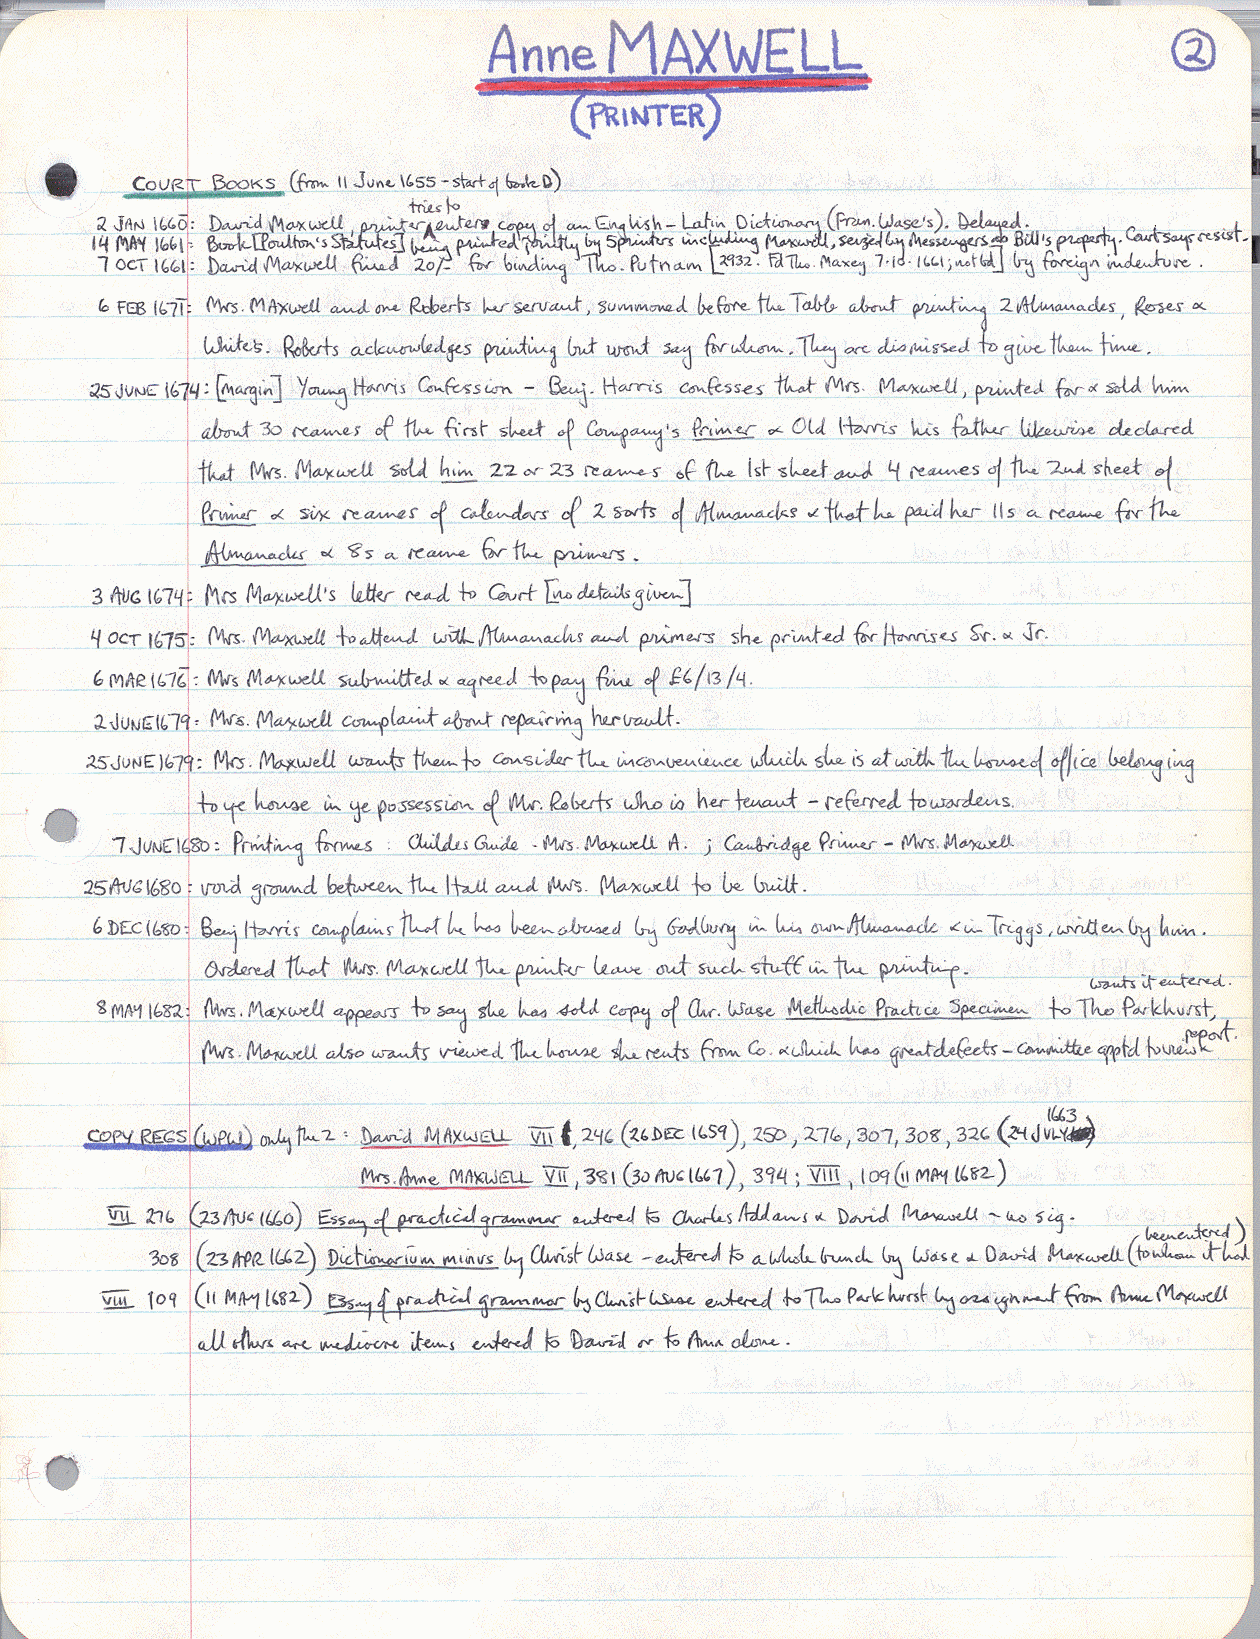 Anne MAXWELL
2
(PRINTER)
COURT BOOKS (from 11 June 1655 - start of book D)
tries to
2 JAN 1660: David Maxwell, printer enters copy of an English-Latin Dictionary (Fran. Wase's). Delayed.
14 MAY 1661: Book [Poulton's Statutes] being printed jointly by 5 printers including Maxwell, seized by Messengers as Bill's property. Court says resist.
7 OCT 1661: David Maxwell fined 20/- for binding Tho. Putnam [2932. Fd Tho. Maxey 7.10.1661; not bd] by foreign indenture.
6 FEB 1671: Mrs. MAxwell and one Roberts her servant, summoned before the Table about printing 2 Almanacks, Roses &
White's. Roberts acknowledges printing but wont say for whom. They are dismissed to give them time.
25 JUNE 1674: [margin] Young Harris Confession - Benj. Harris confesses that Mrs. Maxwell, printed for & sold him
about 30 reames of the first sheet of Company's Primer & Old Harris his father likewise declared
that Mrs. Maxwell sold him 22 or 23 reames of the 1st sheet and 4 reames of the 2nd sheet of
Primer & six reames of calendars of 2 sorts of Almanacks & that he paid her 11s a reame for the
Almanacks & 8s a reame for the primers.
3 AUG 1674: Mrs Maxwell's letter read to Court [no details given]
4 OCT 1675: Mrs. Maxwell to attend with Almanacks and primers she printed for Harrises Sr. & Jr.
6 MAR 1676: Mrs Maxwell submitted & agreed to pay fine of £6/13/4.
2 JUNE 1679: Mrs. Maxwell complaint about repairing her vault.
25 JUNE 1679: Mrs. Maxwell wants them to consider the inconvenience which she is at with the house of office belonging
to ye house in ye possession of Mr. Roberts who is her tenant - referred to wardens.
7 JUNE 1680: Printing formes: Childes Guide - Mrs. Maxwell A. ; Cambridge Primer - Mrs. Maxwell
25 AUG 1680: void ground between the Hall and Mrs. Maxwell to be built.
6 DEC 1680: Benj Harris complains that he has been abused by Gadbury in his own Almanack & in Triggs, written by him.
Ordered that Mrs. Maxwell the printer leave out such stuff in the printing.
wants it entered.
8 MAY 1682: Mrs. Maxwell appears to say she has sold copy of Chr. Wase Methodic Practice Specimen to Tho Parkhurst,
report.
Mrs. Maxwell also wants viewed the house she rents from Co. & which has great defects - committee apptd to view &
1663
COPY REGS (WPW) only the 2: David MAXWELL VII, 246 (26 DEC 1659), 250, 276, 307, 308, 326 (24 JULY)
Mrs. Anne MAXWELL VII, 381 (30 AUG 1667), 394; VIII, 109 (11 MAY 1682)
VII 276 (23 AUG 1660) Essay of practical grammar entered to Charles Addams & David Maxwell - no sig.
been entered)
308 (23 APR 1662) Dictionarium minus by Christ Wase - entered to a whole bunch by Wase & David Maxwell (to whom it had
VIII 109 (11 MAY 1682) Essay of practical grammar by Christ Wase entered to Tho Parkhurst by assignment from Anne Maxwell
all others are mediocre items entered to David or to Ann alone.